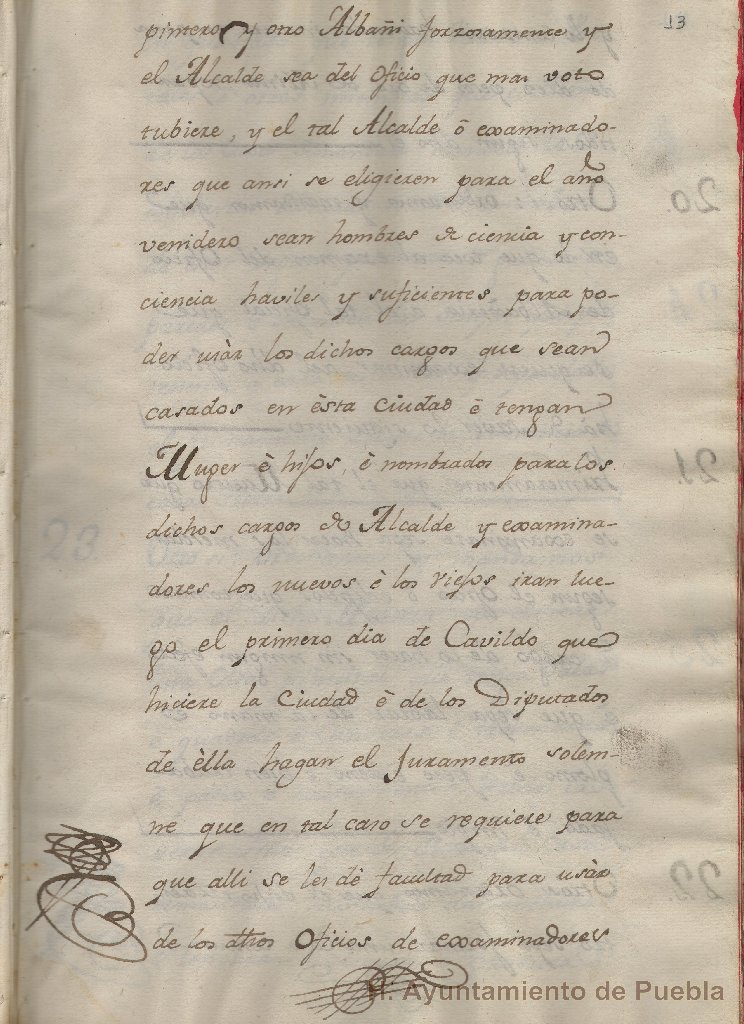 13
pintero, y otro Albañi forzosamente y
el Alcalde sea del oficio que mas voto
tubiere, y el tal Alcalde ô examinado-
res que ansi se eligieren para el año
venidero sean hombres de ciencia y con-
ciencia haviles y suficientes para po-
der usàr los dichos cargos que sean
casados en èsta Ciudad è tengan
Muger è hijos, è nombrados para los
dichos cargos de Alcalde y examina-
dores los nuevos è los viejos iran lue-
go el primero dia de Cavildo que
hiciere la Ciudad è de los Diputados
de èlla hagan el Juramento solem-
ne que en tal caso se requiere para
que alli se les dè facultad para usàr
de los dhos Oficios de examinadores
H. Ayuntamiento de Puebla
20.
21.
23
22.